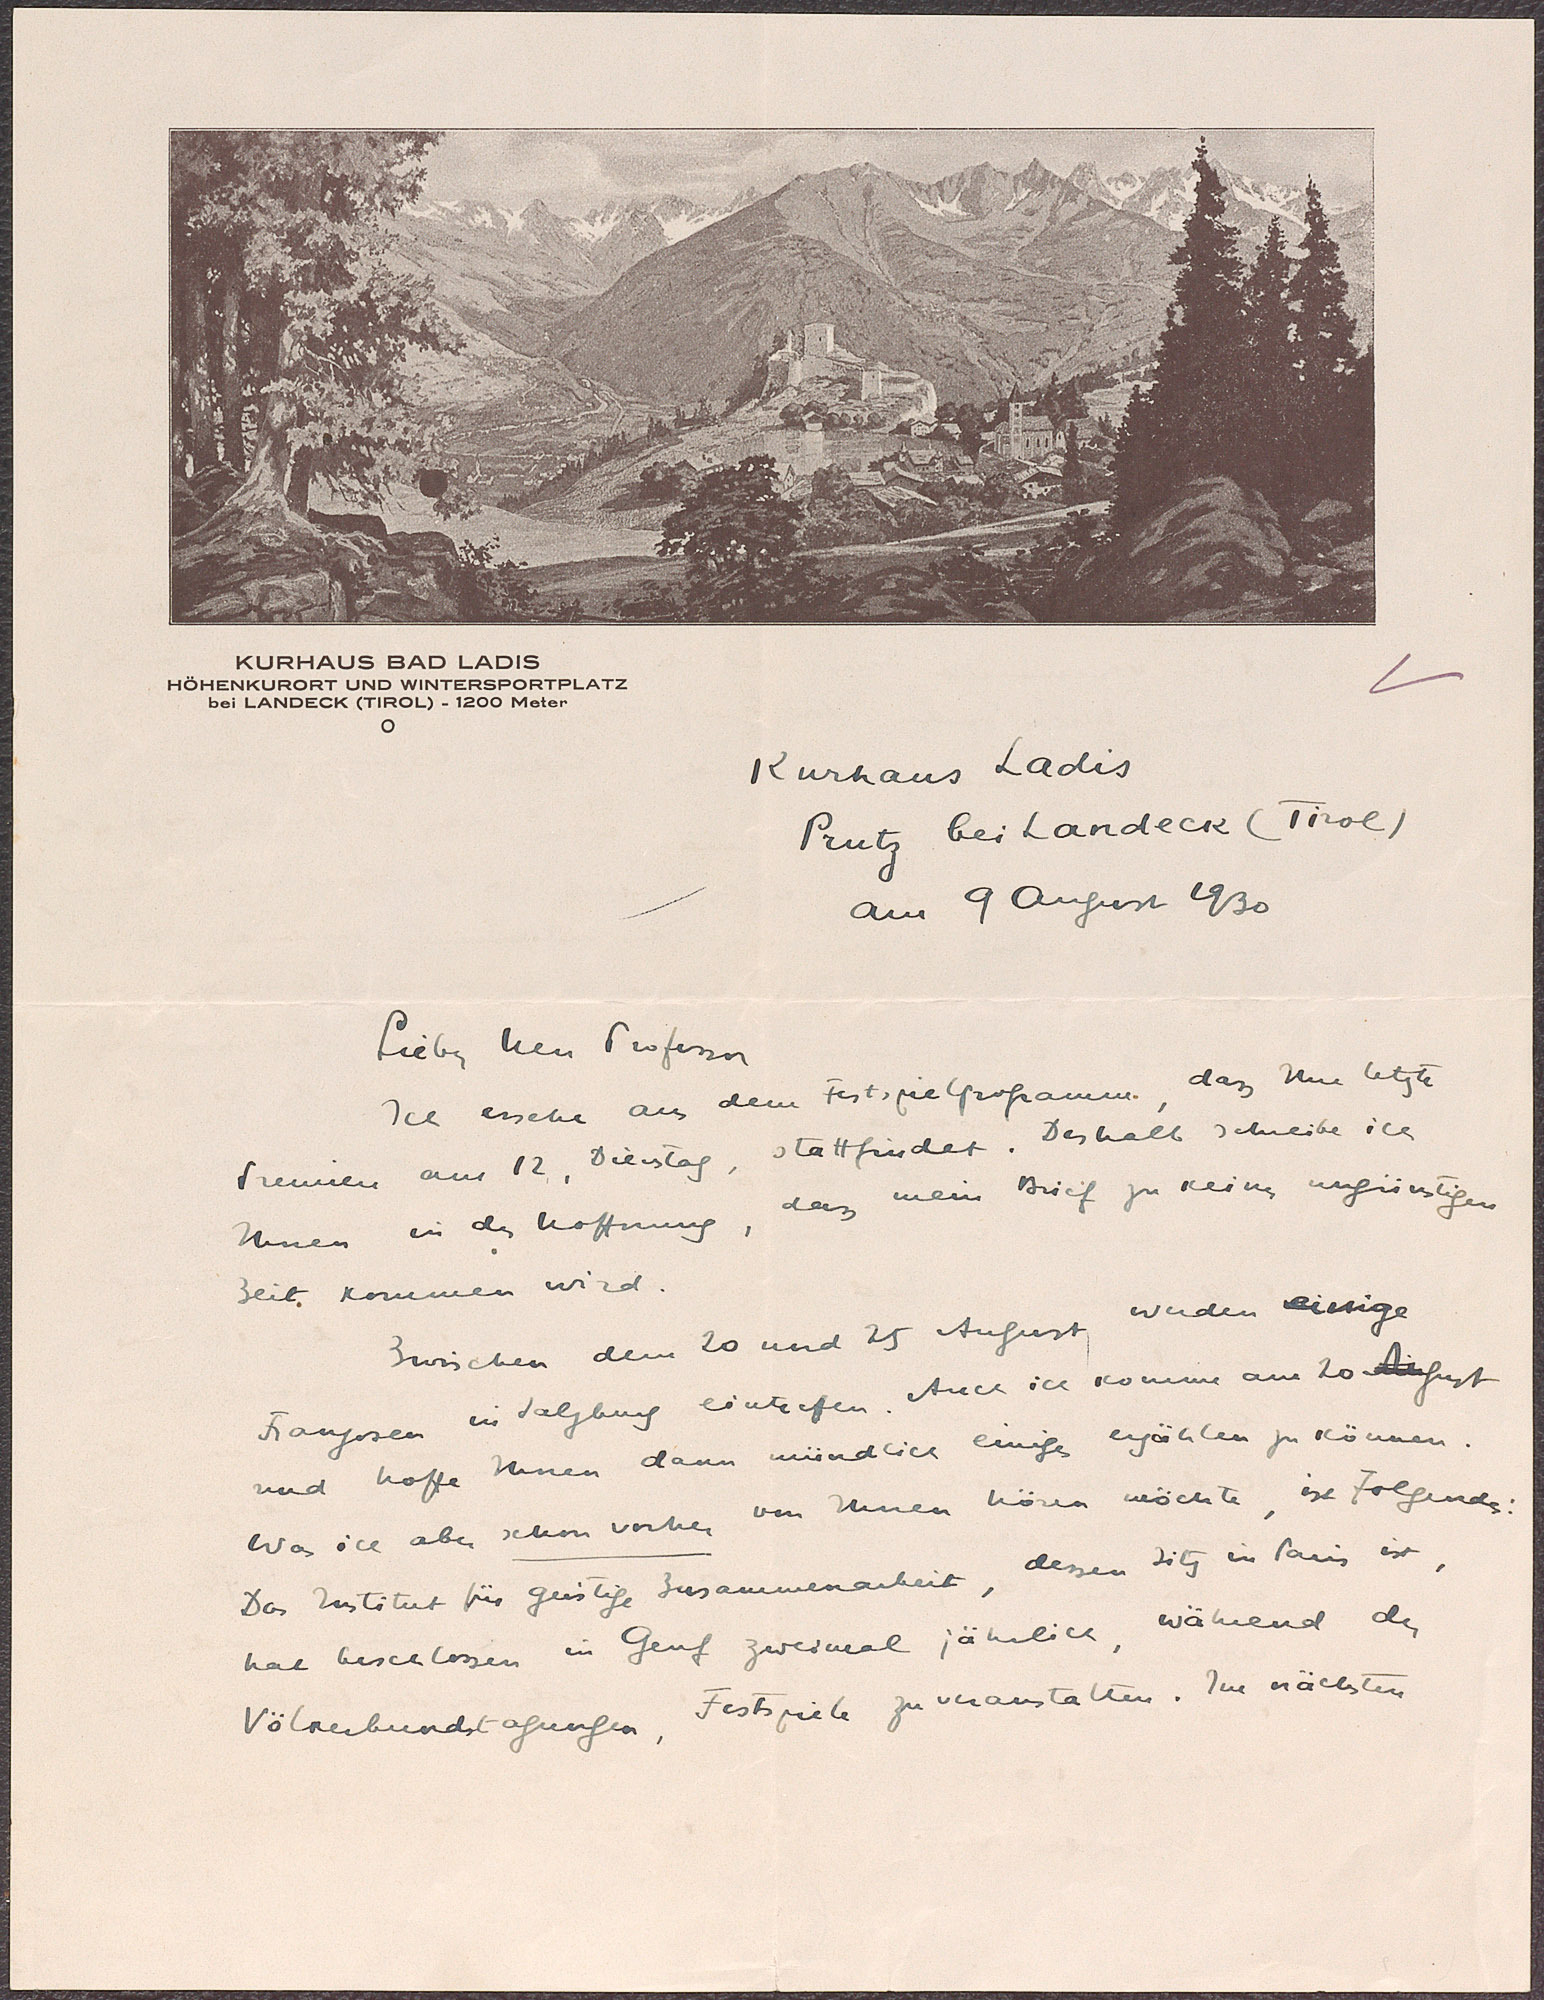 KURHAUS BAD LADIS
HÖHENKURORT UND WINTERSPORTPLATZ
bei LANDECK (TIROL) - 1200 Meter
Kurhaus Ladis
Prutz bei Landeck (Tirol)
am 9 August 1930
Lieber Herr Professor
Ich ersehe aus dem Festspielprogramm, dass Ihre letzte
Premiere am 12, Dienstag, stattfindet. Deshalb schreibe ich
Ihnen in der Hoffnung, dass mein Brief zu keiner ungünstigen
Zeit kommen wird.
Zwischen dem 20 und 25 August werden einige
Franzosen in Salzburg eintreffen. Auch ich komme am 20 August
und hoffe Ihnen dann mündlich einiges erzählen zu können.
Was ich aber schon vorher von Ihnen hören möchte, ist Folgendes:
Das Institut für geistige Zusammenarbeit, dessen Sitz in Paris ist,
hat beschlossen in Genf zweimal jährlich, während der
Völkerbundstagungen, Festspiele zu veranstalten. Im nächsten